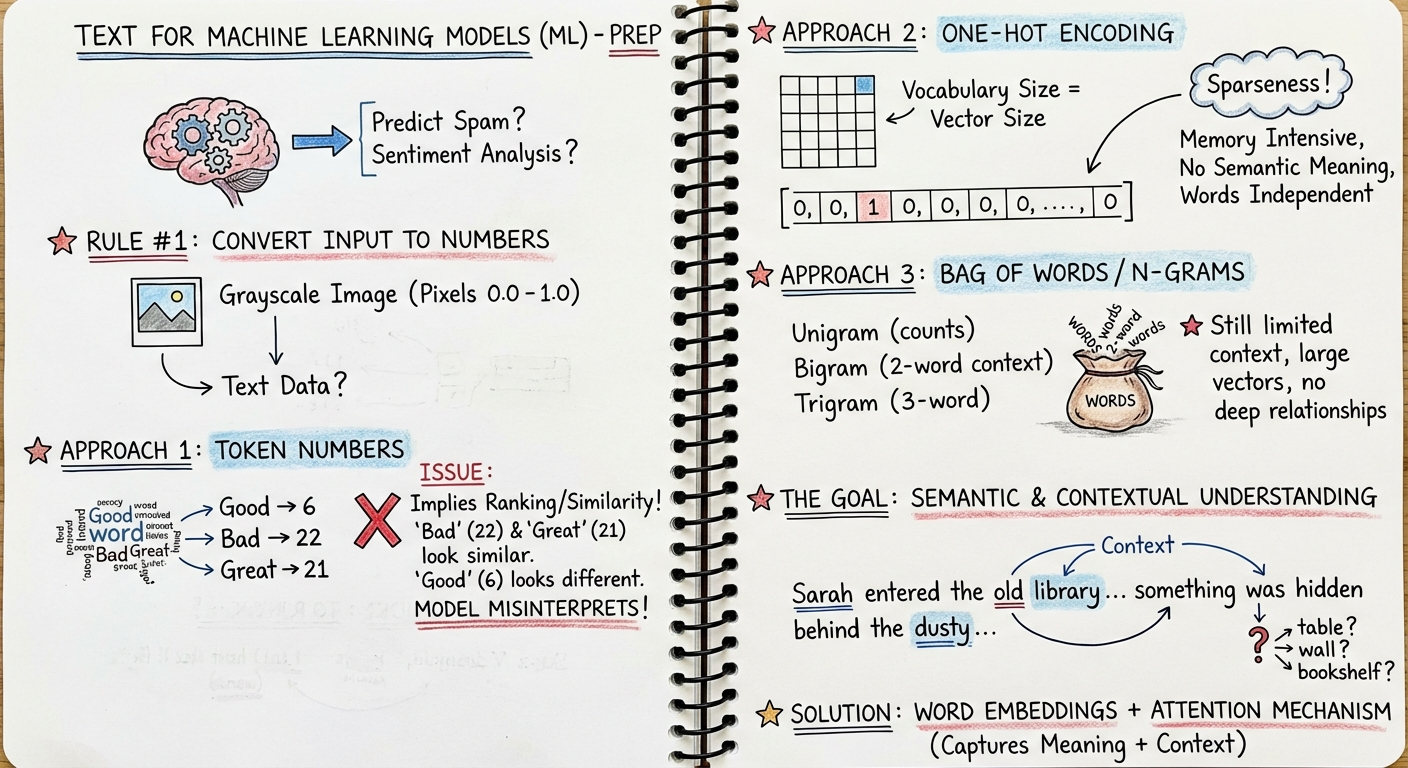 TEXT FOR MACHINE LEARNING MODELS (ML) - PREP
Predict Spam?
Sentiment Analysis?
RULE #1: CONVERT INPUT TO NUMBERS
Grayscale Image (Pixels 0.0 - 1.0)
Text Data?
APPROACH 1: TOKEN NUMBERS
Good
word
Bad Great
Good → 6
Bad → 22
Great → 21
ISSUE:
Implies Ranking/Similarity!
'Bad' (22) & 'Great' (21)
look similar.
'Good' (6) looks different.
MODEL MISINTERPRETS!
APPROACH 2: ONE-HOT ENCODING
Vocabulary Size =
Vector Size
Sparseness!
Memory Intensive,
No Semantic Meaning,
Words Independent
[0, 0, 1 0, 0, 0, 0, ...., 0]
APPROACH 3: BAG OF WORDS / N-GRAMS
Unigram (counts)
Bigram (2-word context)
Trigram (3-word)
words
2-word
words
WORDS
Still limited
context, large
vectors, no
deep relationships
THE GOAL: SEMANTIC & CONTEXTUAL UNDERSTANDING
Context
Sarah entered the old library... something was hidden
behind the dusty...
?
table?
wall?
bookshelf?
SOLUTION: WORD EMBEDDINGS + ATTENTION MECHANISM
(Captures Meaning + Context)